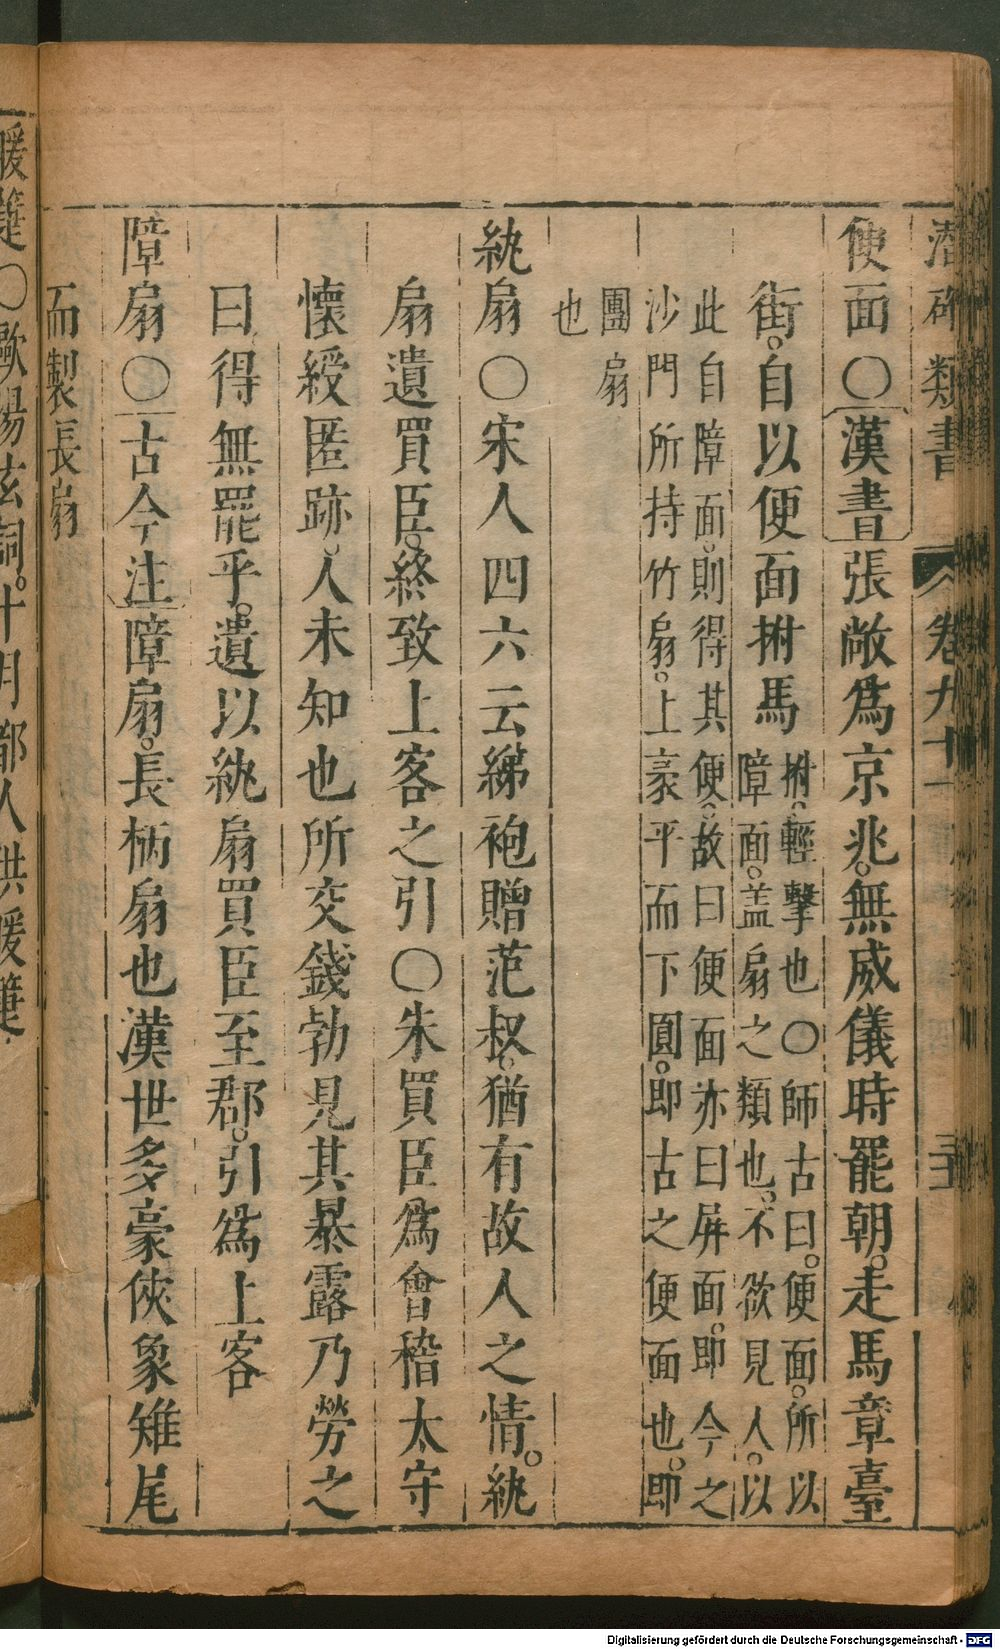 潛确類書 卷九十一
便面〇漢書張敞爲京兆。無威儀時罷朝。走馬章臺
街。自以便面拊馬
拊。輕擊也〇師古曰。便面。所以
障面。盖扇之類也。不欲見人。以
此自障面。則得其便。故曰便面亦曰屏面。即今之
沙門所持竹扇。上豪平而下圓。即古之便面也。即
團扇
也
紈扇〇宋人四六云綈袍贈范叔。猶有故人之情。紈
扇遺買臣。終致上客之引〇朱買臣爲會稽太守
懷綬匿跡。人未知也所交錢勃見其暴露乃勞之
曰得無罷乎。遺以紈扇買臣至郡。引爲上客
障扇〇古今注障扇。長柄扇也漢世多豪俠象雉尾
而製長扇
暖䈴〇歐陽玄詞。十月都人供暖䈴
Digitalisierung gefördert durch die Deutsche Forschungsgemeinschaft - DFG